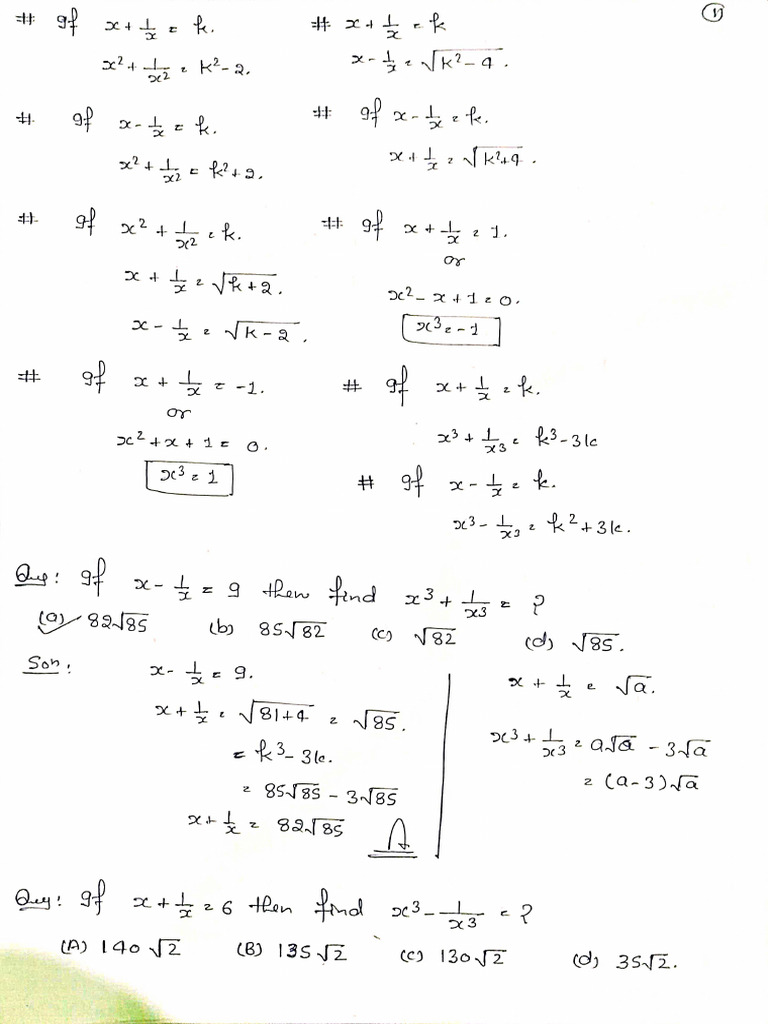 ①
# If x + 1/x = k.
x² + 1/x² = k² - 2.
# x + 1/x = k
x - 1/x = √(k² - 4).
# If x - 1/x = k.
x² + 1/x² = k² + 2.
# If x - 1/x = k.
x + 1/x = √(k² + 4).
# If x² + 1/x² = k.
x + 1/x = √(k + 2).
x - 1/x = √(k - 2).
# If x + 1/x = 1.
or
x² - x + 1 = 0.
x³ = -1
# If x + 1/x = -1.
or
x² + x + 1 = 0.
x³ = 1
# If x + 1/x = k.
x³ + 1/x³ = k³ - 3k
# If x - 1/x = k.
x³ - 1/x³ = k² + 3k.
Que: If x - 1/x = 9 then find x³ + 1/x³ = ?
(a) 82√85 (b) 85√82 (c) √82 (d) √85.
Son:
x - 1/x = 9.
x + 1/x = √(81 + 4) = √85.
= k³ - 3k.
= 85√85 - 3√85
x + 1/x = 82√85 A
x + 1/x = √a.
x³ + 1/x³ = a√a - 3√a
= (a - 3)√a
Que: If x + 1/x = 6 then find x³ - 1/x³ = ?
(A) 140√2 (B) 135√2 (c) 130√2 (d) 35√2.